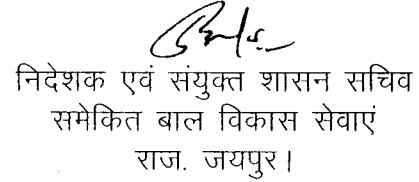 निदेशक एवं संयुक्त शासन सचिव
समेकित बाल विकास सेवाएं
राज. जयपुर।